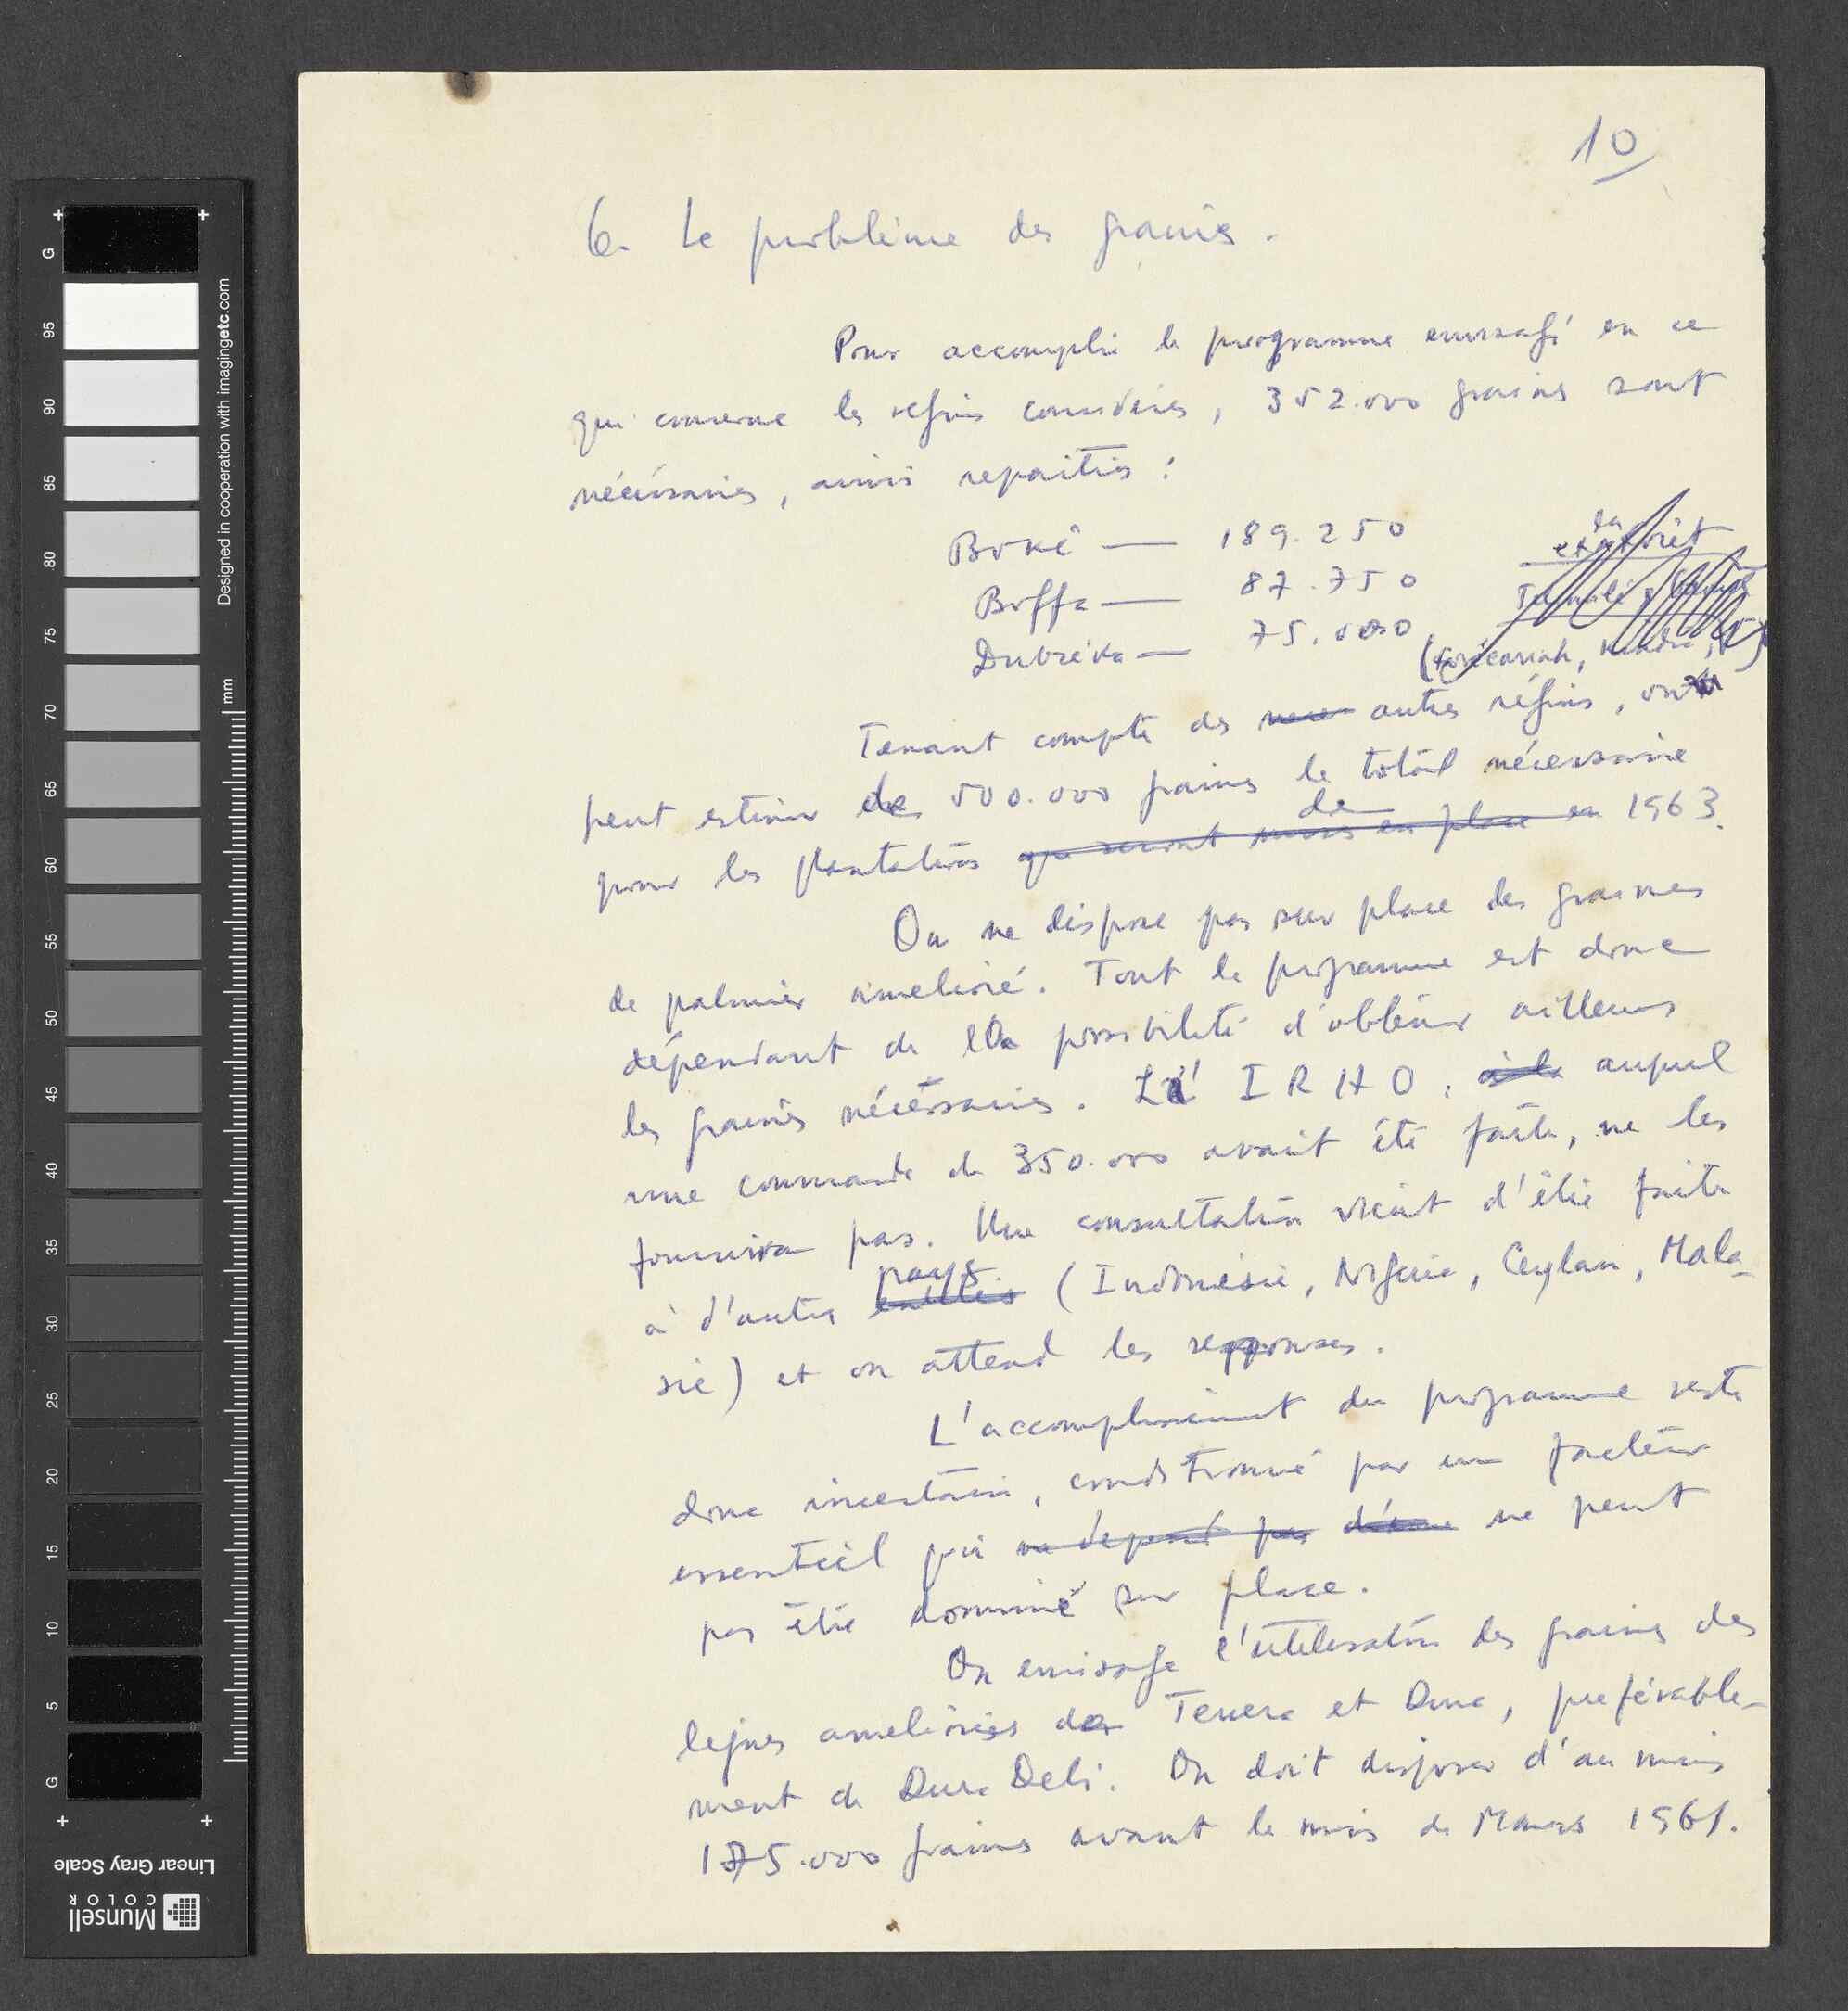 10
6. Le problème des graines.
Pour accomplir le programme envisagé en ce
qui concerne les régions considérées, 352.000 graines sont
nécéssaires, ainsi reparties :
Boké — 189.250
Boffa — 87.750
Dubréka — 75.000
(Forécariah, Kindia,
Tenant compte des autres régions, on
peut estimer de 500.000 graines le total nécessaire
pour les plantations que seront mises en place de en 1963.
On ne dispose pas sur place des graines
de palmier amelioré. Tout le programme est donc
dépendant de la possibilité d'obtenir ailleurs
les graines nécéssaires. L' IRHO, à la auquel
une commande de 350.000 avait été faite, ne les
fournira pas. Une consultation vient d'être faite
à d'autres pays (Indonésie, Nigeria, Ceylan, Mala-
sie) et on attend les reponses.
L'accomplissement du programme reste
donc incertain, conditionné par un facteur
essentiel qui ne depend pas d'une ne peut
pas être dominé sur place.
On envisage l'utilisation des graines des
lignes ameliorées de Tenera et Dura, preférable-
ment de Dura Deli. On doit disposer d'au moins
175.000 graines avant le mois de Mars 1961.
Designed in cooperation with imagingetc.com
mm
G
95
90
85
80
75
70
65
60
55
50
45
40
35
30
25
20
15
10
5
G
Linear Gray Scale
Munsell
COLOR